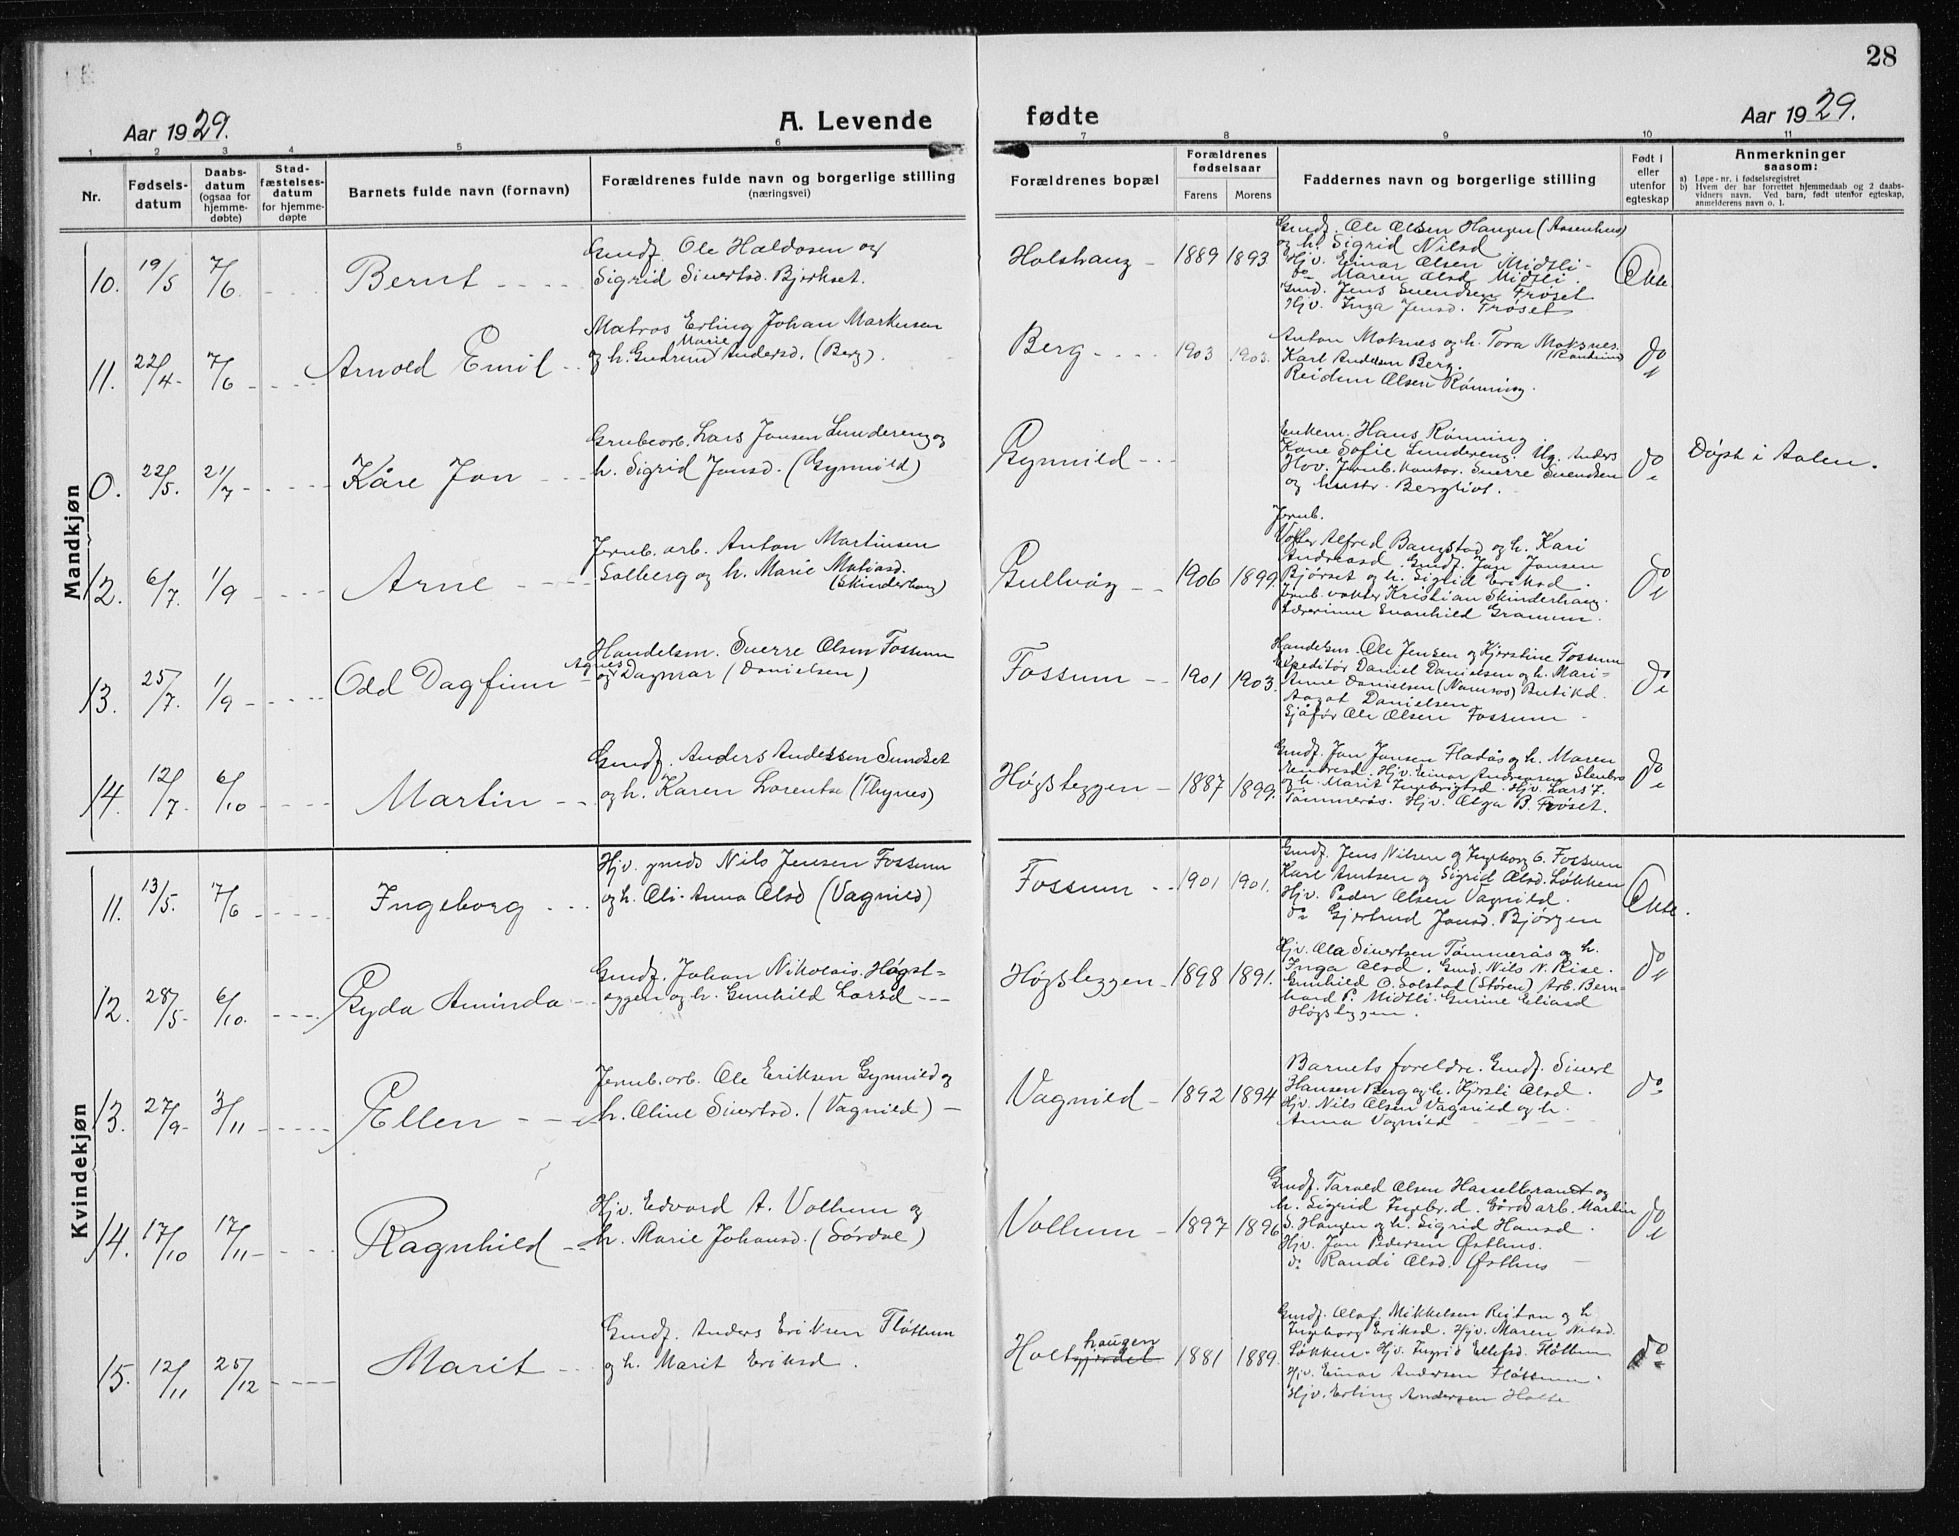 28
Aar 1929.
A. Levende
fødte
Aar 1929.
1 2 3 4 5 6 7 8 9 10 11
Nr.
Fødsels-
datum
Daabs-
datum
(ogsaa for
hjemme-
døbte)
Stad-
fæstelses-
datum
for hjemme-
døpte
Barnets fulde navn (fornavn)
Forældrenes fulde navn og borgerlige stilling
(næringsvei)
Forældrenes bopæl
Forældrenes
fødselsaar
Farens
Morens
Faddernes navn og borgerlige stilling
Født i
eller
utenfor
egteskap
Anmerkninger
saasom:
a) Løpe-nr. i fødselsregistret
b) Hvem der har forrettet hjemmedaab og 2 daabs-
vidners navn. Ved barn, født utenfor egteskap,
anmelderens navn o. l.
Mandkjøn
10. 19/5 7/6 Bernt
Gmdf. Ole Haldosen og
Sigrid Sivertsd. Bjørkset.
1889 1893
Gmdf. Ole Olsen Haugen (Aasenhus)
og h. Sigrid Nilsd
Hjv. Einar Olsen Midtli
do Maren Olsd Midtli.
Gmd. Jens Svendsen Frøset
Hjv. Inga Jensd. Frøset
Ekte
11. 22/4 7/6 Arnold Emil
Matros Erling Johan Markusen
og h. Gudrun Marie Andersd. (Berg).
Berg 1903 1903.
Anton Moknes og h. Tora Moksnes.
(Ranheim)
Karl Andersen Berg.
Reidun Olsen Rønning.
do
0. 22/5. 21/7 Kåre Jon
Grubearb. Lars Jonsen Lundereng og
h. Sigrid Jonsd. (Gynnild)
Gynnild
Enkem. Hans Rønning
Kone Sofie Lundereng. Ug. Anders
Hov. Jernb. kontor. Sverre Svendsen
og hustr. Bergliot.
do
Døpt i Aalen.
12. 6/7. 1/9 Arne
Jernb. arb. Anton Martinsen
Solberg og h. Marie Matiasd.
(Skinderhaug)
Gullvåg 1906 1899
Jernb.
Vokter Alfred Bangstad og h. Kari
Andreasd. Gmdf. Jon Jonsen
Bjørset og h. Sigrid Eriksd.
Jernb. vokter Kristian Skinderhaug.
Lærerinne Svanhild Gramm.
do
13. 25/7. 1/9 Odd Dagfinn
Handelsm. Sverre Olsen Fossum
og Agnes Dagmar (Danielsen)
Fossum 1901 1903.
Handelsm. Ole Jensen og Kjerstine Fossum
Ekspeditør Daniel Danielsen og h. Mari-
Anne Danielsen (Namsos) Butikd.
Aagot Danielsen
Sjåfør Ole Olsen Fossum
do
14. 12/7. 6/10 Martin
Gmdf. Anders Anderssen Sundset
og h. Karen Lorentse (Thynes)
Høgsteggen 1887 1899.
Gmdf. Jon Jonsen Fladås og h. Maren
Hjv. Einar Andreasen Stenbro
og h. Marit Ingebrigtsd. Hjv. Lars J.
Tømmerås. Hjv. Olga B. Frøset.
do
Kvindekjøn
11. 13/5. 7/6 Ingeborg
Hjv. gmds Nils Jensen Fossum
og h. Oli-Anna Olsd (Vagnild)
Fossum 1901 1901.
Gmdf. Jens Nilsen og Ingeborg O. Fossum
Karl Arntsen og Sigrid Olsd. Løkken
Hjv. Peder Olsen Vagnild.
do Gjertrud Jonsd. Bjørgen
Ekte.
12. 28/5 6/10. Gyda Aminda
Gmdf. Johan Nikolais. Høgst-
eggen og h. Gunhild Larsd
Høgsteggen 1898 1891.
Hjv. Ola Sivertsen Tømmerås og h.
Inga Olsd. Gmd. Nils N. Rise.
Gunhild O. Solstad (Støren) Arb. Bern-
hard P. Midtli. Gurine Eliasd
Høgsteggen.
do
13. 27/9 3/11 Ellen
Jernb. arb. Ole Eriksen Gynnild og
h. Oline Sivertsd. (Vagnild)
Vagnild 1892 1894
Barnets foreldre. Gmdf. Sivert
Hansen Berg og h. Kjersti Olsd.
Hjv. Nils Olsen Vagnild og h.
Anna Vagnild
do
14. 17/10 17/11 Ragnhild
Hjv. Edvard A. Vollum og
h. Marie Johansd. (Sørdal)
Vollum 1897 1896
Gmdf. Tarald Olsen Hasselbrandt og
h. Sigrid Ingebr.d. Gårdsarb. Martin
S. Haugen og h. Sigrid Hansd.
Hjv. Jon Pedersen Østhus.
do Randi Olsd. Østhus
do
15. 12/11 25/12 Marit
Gmdf. Anders Eriksen Fløttum
og h. Marit Eriksd.
Holthaugen 1881 1889.
Gmdf. Olaf Mikkelsen Reitan og h
Ingeborg Eriksd. Hjv. Maren Nilsd.
Løkken. Hjv. Ingrid Ellefsd. Fløttum
Hjv. Einar Andersen Fløttum.
Hjv. Erling Andersen Holte
do